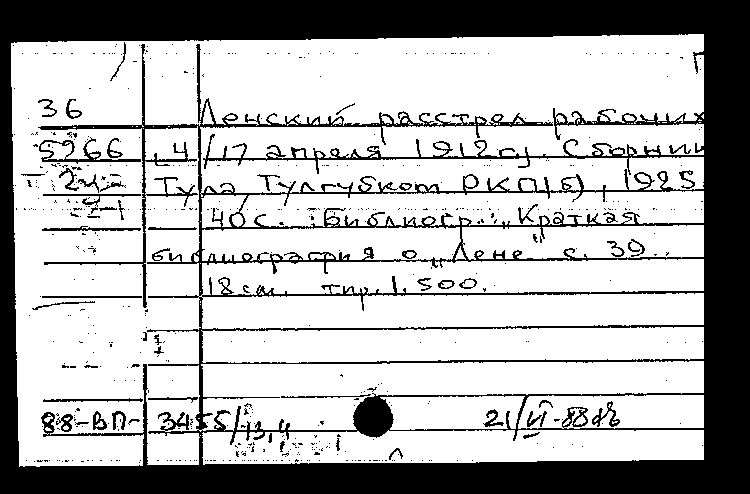 36 Ленский расстрел рабочих
5966 „4/17 апреля 1912г.) Сборник
Тула, Тулгубком РКП(б), 1925
40с. Библиогр.: „Краткая
библиография о „Лене" с. 39.
18 см. тир. 1.500.
88-ВП- 3455/13,4 21/VI-88